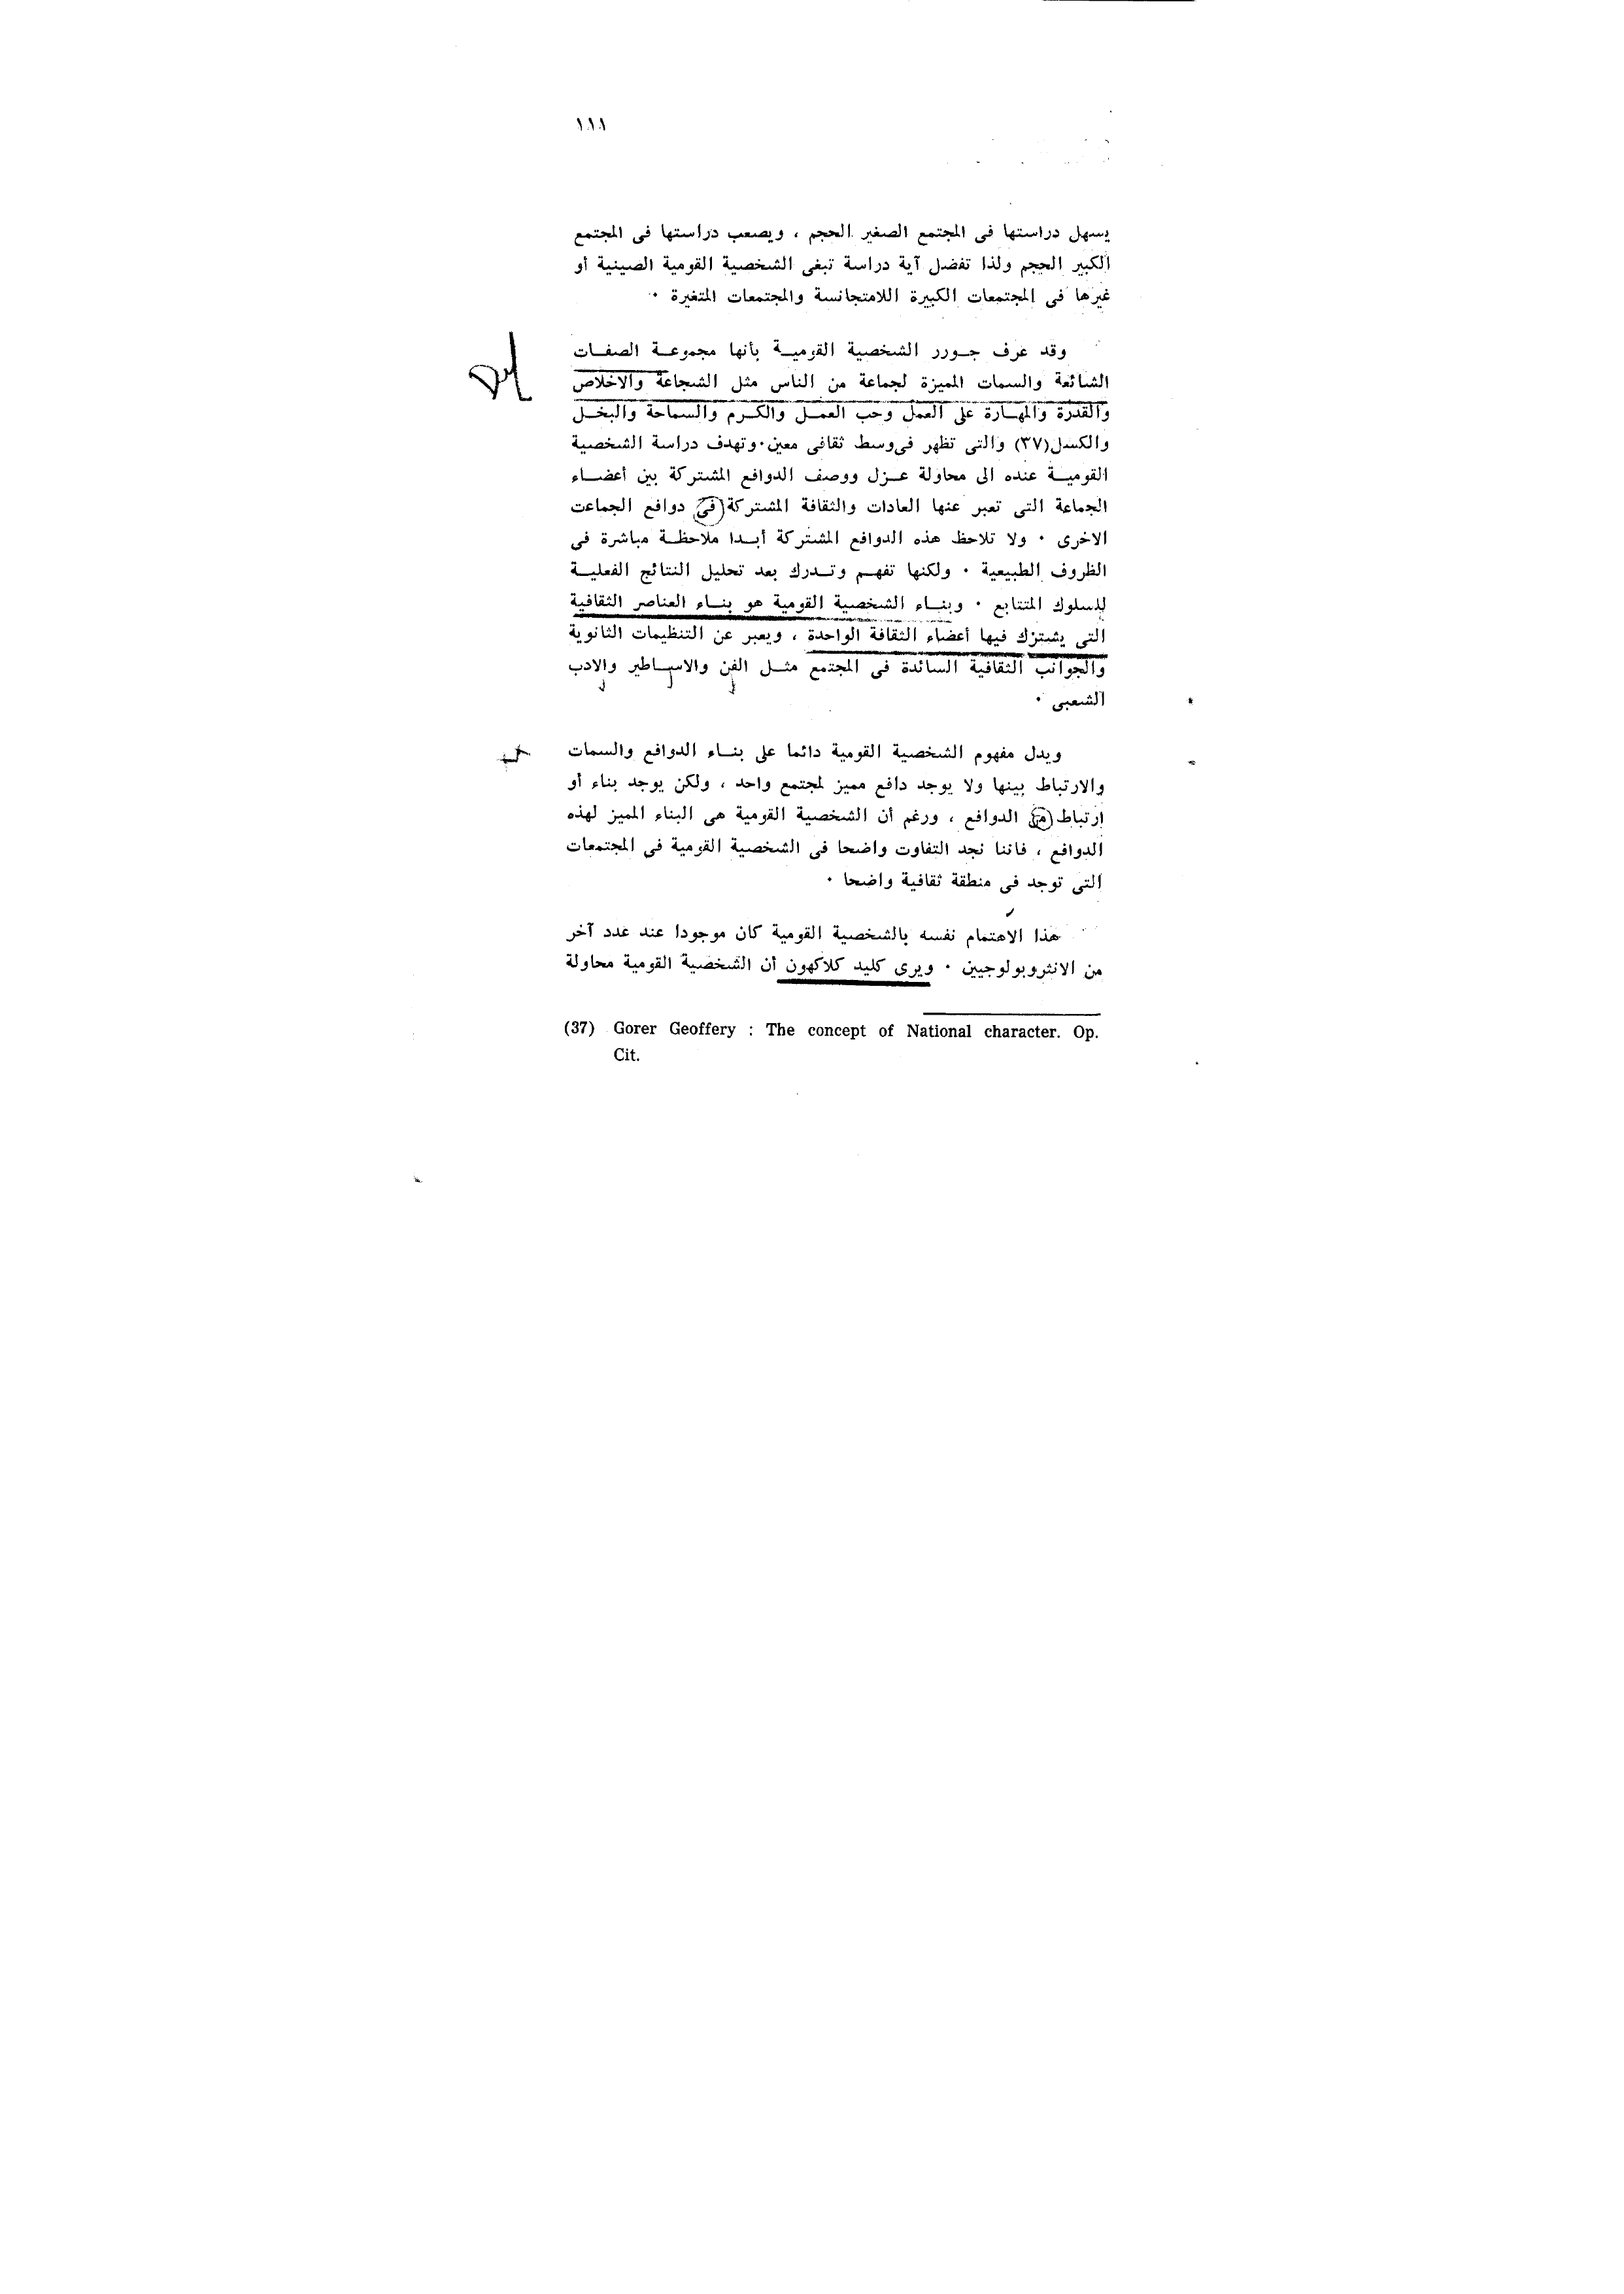 ١١١
يسهل دراستها فى المجتمع الصغير الحجم ، ويصعب دراستها فى المجتمع
الكبير الحجم ولذا تفضل آية دراسة تبغى الشخصية القومية الصينية أو
غيرها فى المجتمعات الكبيرة اللامتجانسة والمجتمعات المتغيرة ٠
وقد عرف جـورر الشخصية القوميـة بأنها مجموعـة الصفـات
الشائعة والسمات المميزة لجماعة من الناس مثل الشجاعة والاخلاص
والقدرة والمهـارة على العمل وحب العمـل والكـرم والسماحة والبخـل
والكسل(٣٧) والتى تظهر فى وسط ثقافى معين٠وتهدف دراسة الشخصية
القوميـة عنده الى محاولة عـزل ووصف الدوافع المشتركة بين أعضـاء
الجماعة التى تعبر عنها العادات والثقافة المشتركة فى دوافع الجماعت
الاخرى ٠ ولا تلاحظ هذه الدوافع المشتركة أبـدا ملاحظـة مباشرة فى
الظروف الطبيعية ٠ ولكنها تفهـم وتـدرك بعد تحليل النتائج الفعليـة
للسلوك المتتابع ٠ وبنـاء الشخصية القومية هو بنـاء العناصر الثقافية
التى يشترك فيها أعضاء الثقافة الواحدة ، ويعبر عن التنظيمات الثانوية
والجوانب الثقافية السائدة فى المجتمع مثـل الفن والاسـاطير والادب
الشعبى ٠
ويدل مفهوم الشخصية القومية دائما على بنـاء الدوافع والسمات
والارتباط بينها ولا يوجد دافع مميز لمجتمع واحد ، ولكن يوجد بناء أو
إرتباط من الدوافع ، ورغم أن الشخصية القومية هى البناء المميز لهذه
الدوافع ، فاننا نجد التفاوت واضحا فى الشخصية القومية فى المجتمعات
التى توجد فى منطقة ثقافية واضحا ٠
هذا الاهتمام نفسه بالشخصية القومية كان موجودا عند عدد آخر
من الانثروبولوجيين ٠ ويرى كليد كلاكهون أن الشخصية القومية محاولة
(37) Gorer Geoffery : The concept of National character. Op.
Cit.